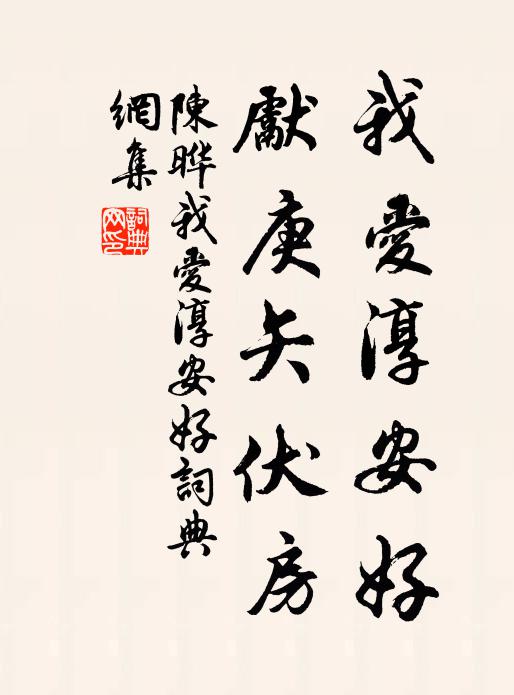 我愛淳安好
獻庚矢伏房
陳晔我愛淳安好詞典
網集
詞典網印